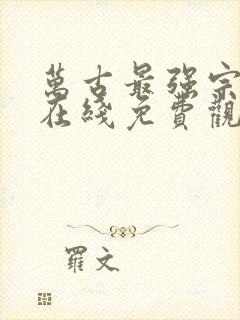 萬古最强宗
在綫免費觀
羅文